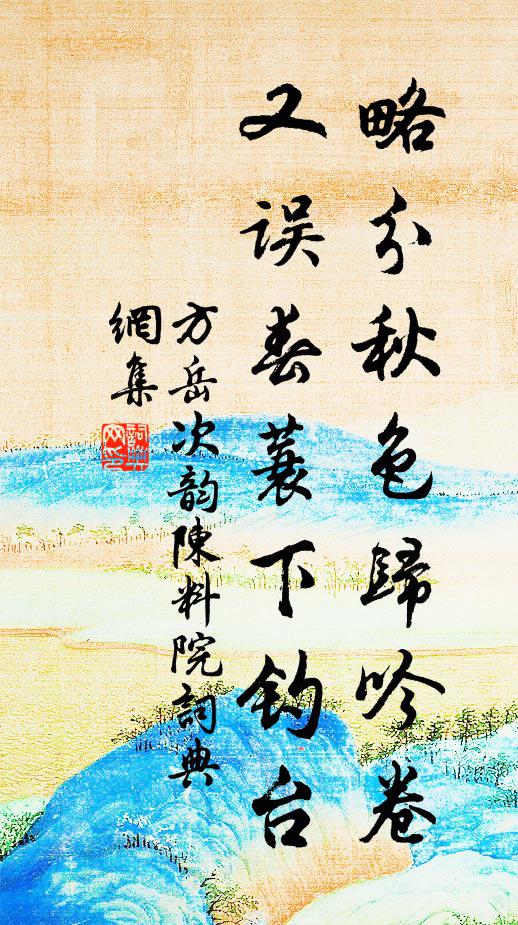 略分秋色歸吟卷
又误春蓑下钓台
方岳次韵陳料院詞典
網集